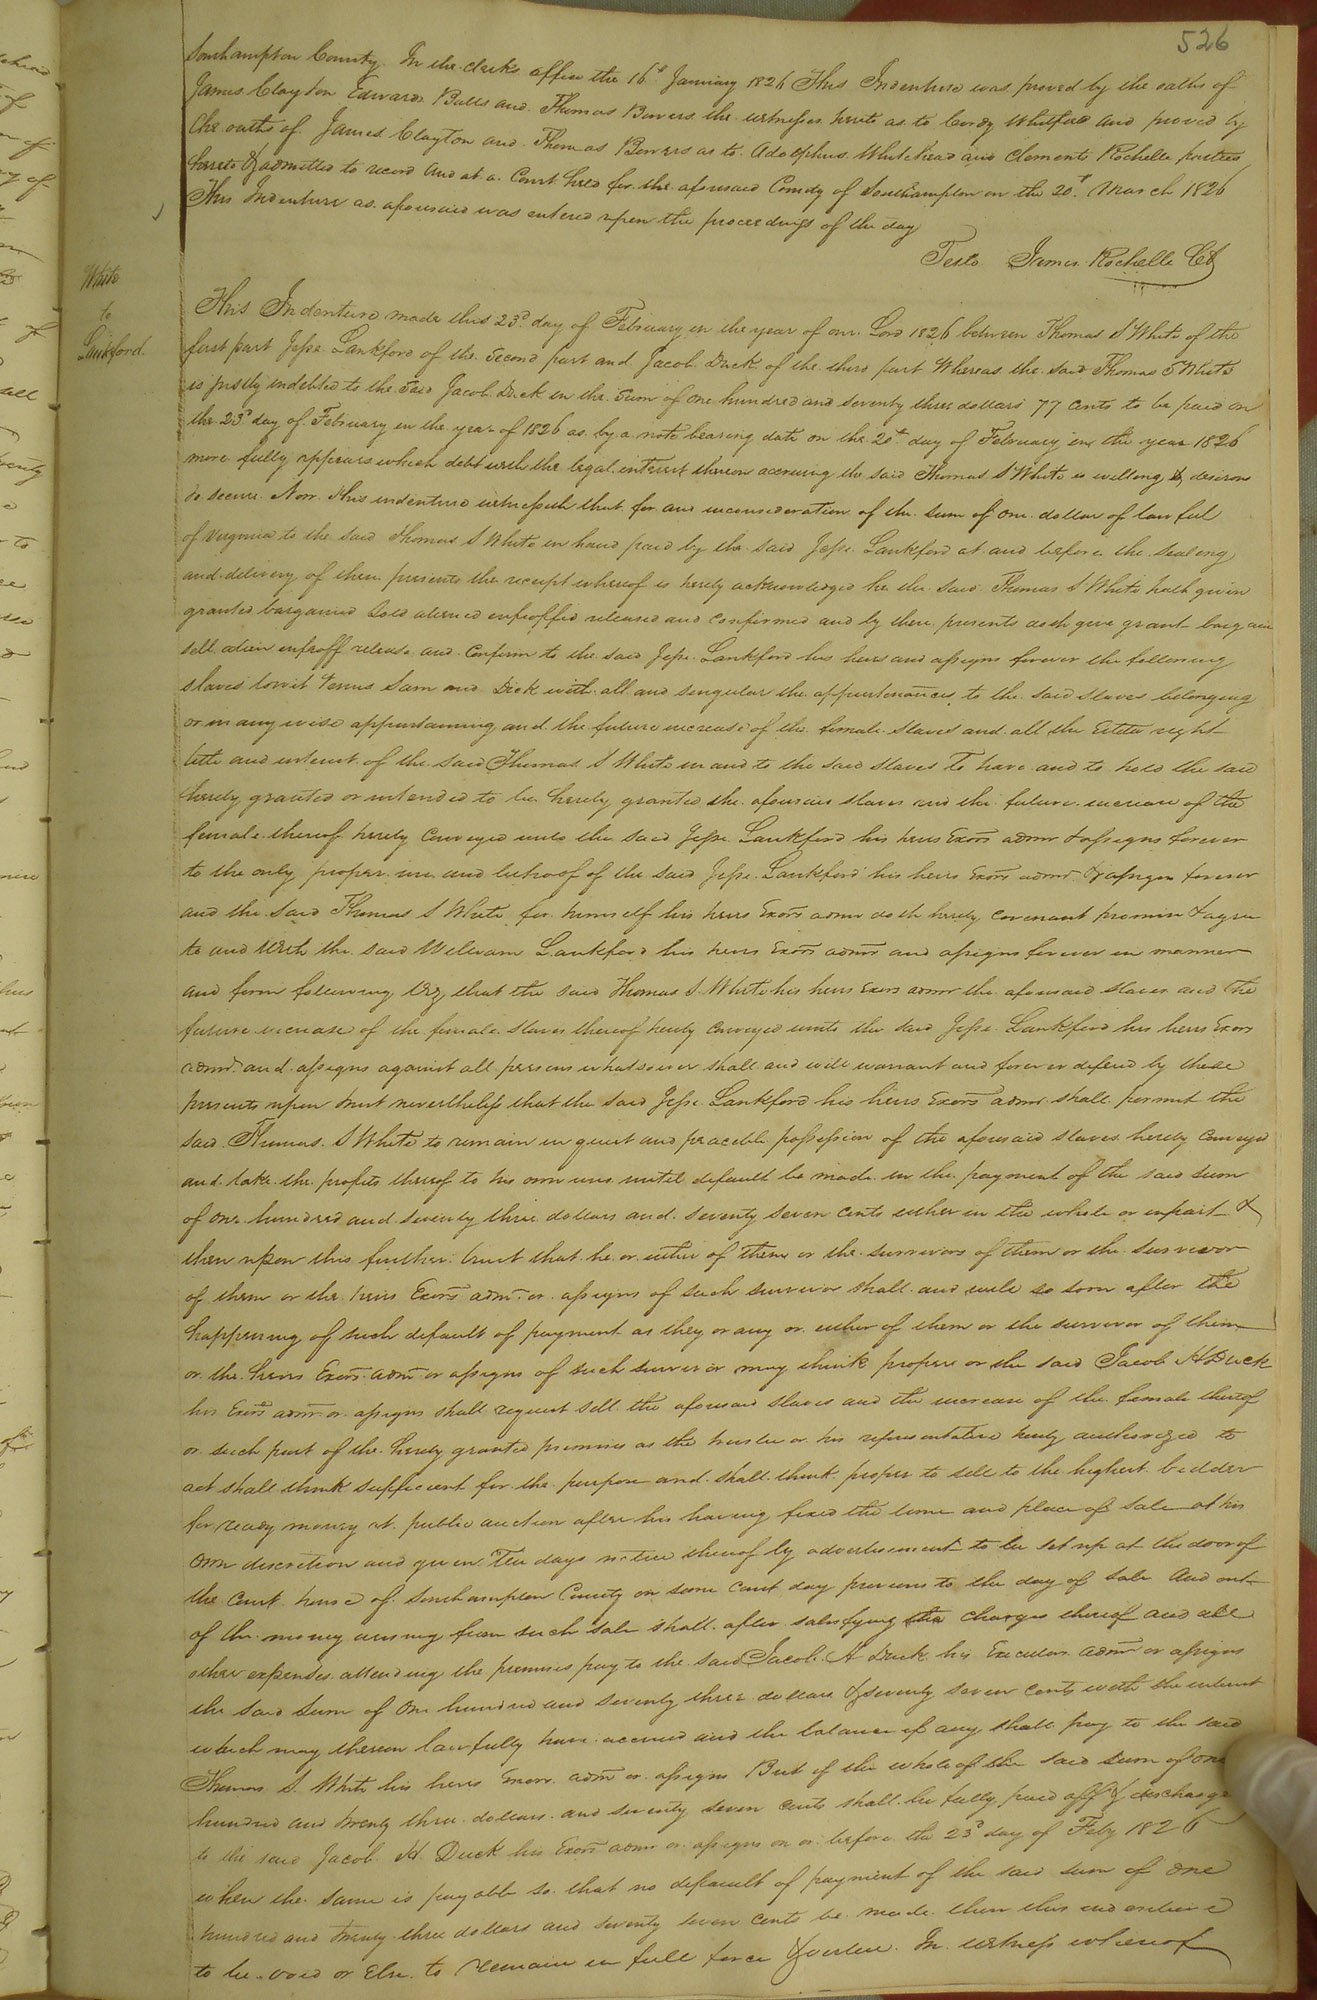 526
Southampton County. In the clerks office the 16th January 1826 This Indenture was proved by the oaths of
James Clayton Edward Butts and Thomas Bowers the witnesses hereto as to Cordy Whitford and proved by
the oaths of James Clayton and Thomas Bowers as to Adolphus Whitehead and Clements Rochelle parties
hereto & admitted to record And at a Court held for the aforesaid County of Southampton on the 20th March 1826
This Indenture as aforesaid was entered upon the proceedings of the day
Teste James Rochelle Ck
White
to
Lankford.
This Indenture made this 23d day of February in the year of our Lord 1826 between Thomas S White of the
first part Jesse Lankford of the Second part and Jacob Duck of the third part Whereas the said Thomas S White
is justly indebted to the said Jacob Duck in the Sum of one hundred and seventy three dollars 77 cents to be paid on
the 23d day of February in the year of 1826 as by a note bearing date on the 20th day of February in the year 1826
more fully appears which debt with the legal interest thereon accruing the said Thomas S White is willing & desirous
to secure Now this indenture witnesseth that for and inconsideration of the sum of one dollar of lawful
of Virginia to the said Thomas S White in hand paid by the said Jesse Lankford at and before the sealing
and delivery of these presents the receipt whereof is hereby acknowledged he the said Thomas S White hath given
granted bargained sold aliened enfeoffed released and confirmed and by these presents doth give grant bargain
sell alien enfeoff release and confirm to the said Jesse Lankford his heirs and assigns forever the following
slaves towit Sam and Dick with all and singular the appurtenances to the said slaves belonging
or in any wise appertaining and the future increase of the female slaves and all the Estate right
title and interest of the said Thomas S White in and to the said slaves To have and to hold the said
hereby granted or intended to be hereby granted the aforesaid slaves and the future increase of the
female thereof hereby conveyed unto the said Jesse Lankford his heirs Exors admr & assigns forever
to the only proper use and behoof of the said Jesse Lankford his heirs Exors admr & assigns forever
and the said Thomas S White for himself his heirs Exors admr doth hereby covenant promise & agree
to and with the said William Lankford his heirs Exors admrs and assigns forever in manner
and form following Viz, that the said Thomas S. White his heirs Exors admr the aforesaid slaves and the
future increase of the female slaves thereof hereby conveyed unto the said Jesse Lankford his heirs Exors
admr and assigns against all persons whatsoever shall and will warrant and forever defend by these
presents upon trust nevertheless that the said Jesse Lankford his heirs Exors admr shall permit the
said Thomas S White to remain in quiet and peaceble possession of the aforesaid slaves hereby conveyed
and take the profits thereof to his own use until default be made in the payment of the said sum
of one hundred and seventy three dollars and seventy seven cents either in the whole or inpart &
then upon this further trust that he or either of them or the survivors of them or the survivor
of them or the heirs Exors admr or assigns of such survivor shall and will so soon after the
happening of such default of payment as they or any or either of them or the survivor of them
or the heirs Exors admr or assigns of such survivor may think proper or the said Jacob H Duck
his Exors admr or assigns shall request sell the aforesaid slaves and the increase of the female thereof
or such part of the hereby granted premises as the trustee or his representative hereby authorized to
act shall think sufficient for the purpose and shall think proper to sell to the highest bidder
for ready money at public auction after his having fixed the time and place of sale at his
own discretion and given Ten days notice thereof by advertisement to be set up at the door of
the Court house of Southampton County on some court day previous to the day of sale And out
of the money arising from such sale shall after satisfying the charges thereof and all
other expenses attending the premises pay to the said Jacob H Duck his Executors admr or assigns
the said Sum of one hundred and seventy three dollars & seventy seven cents with the interest
which may thereon lawfully have accrued and the balance if any shall pay to the said
Thomas S. White his heirs Exors admr or assigns But if the whole of the said sum of one
hundred and twenty three dollars and seventy seven cents shall be fully paid off & discharge
to the said Jacob H. Duck his Exors admr or assigns on or before the 23d day of Feby 1826
when the same is payable so that no default of payment of the said sum of one
hundred and twenty three dollars and seventy seven cents be made then this indenture
to be void or else to remain in full force & virtue. In witness whereof